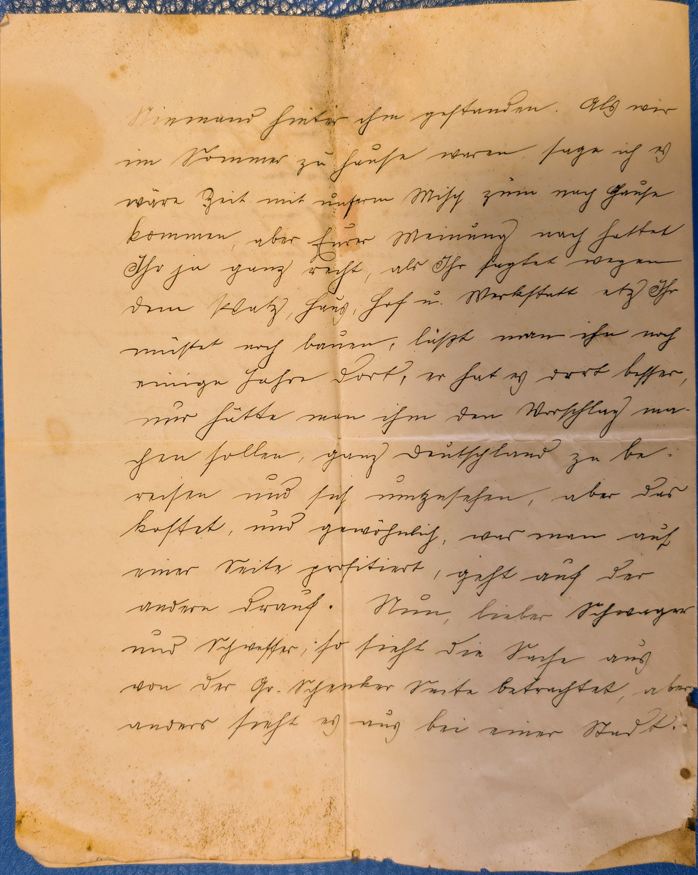 Niemand hinter ihm gestanden. Als wir
im Sommer zu Hause waren sage ich es
wäre Zeit mit unserm Misch zum nach Hause
kommen, aber Eurer Meinung nach hattet
Ihr ja ganz recht, als Ihr sagtet wegen
dem Platz, Haus, Hof u. Werkstatt etz Ihr
müstet noch bauen, läßt man ihn noch
einige Jahre dort, er hat es dort besser,
nur hätte man ihm den Vorschlag ma-
chen sollen, ganz Deutschland zu be-
reisen und sich umzusehen, aber das
kostet, und gewöhnlich, was man auf
einer Seite profitiert, geht auf der
andern drauf. Nun, lieber Schwager
und Schwester, so sieht die Sache aus
von der Gr. Schenker Seite betrachtet, aber
anders sieht es aus bei einer Stadt.